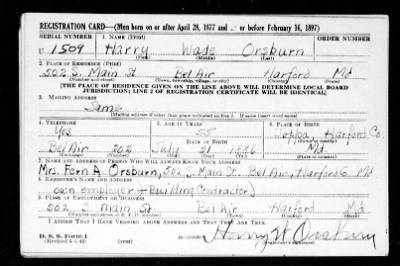 REGISTRATION CARD—(Men born on or after April 28, 1877 and or before February 16, 1897)
SERIAL NUMBER 1. NAME (Print) ORDER NUMBER
U 1509 Harry Wade Orsburn
(First) (Middle) (Last)
2. PLACE OF RESIDENCE (Print)
502 S. Main St Bel Air Harford Md
(Number and street) (Town, township, village, or city) (County) (State)
[THE PLACE OF RESIDENCE GIVEN ON THE LINE ABOVE WILL DETERMINE LOCAL BOARD
JURISDICTION; LINE 2 OF REGISTRATION CERTIFICATE WILL BE IDENTICAL]
3. MAILING ADDRESS
Same
[Mailing address if other than place indicated on line 2. If same insert word same]
4. TELEPHONE 5. AGE IN YEARS 6. PLACE OF BIRTH
Yes 55 Joppa, Harford Co.
DATE OF BIRTH
Bel Air 502 July 31 1886 Md
7. NAME AND ADDRESS OF PERSON WHO WILL ALWAYS KNOW YOUR ADDRESS
Mrs. Fern A. Orsburn, 502 S. Main St. Bel Air, Harford Co Md
8. EMPLOYER'S NAME AND ADDRESS
own employer + Building Contractor
9. PLACE OF EMPLOYMENT OR BUSINESS
502 S. Main St Bel Air Harford Md
I AFFIRM THAT I HAVE VERIFIED ABOVE ANSWERS AND THAT THEY ARE TRUE.
D. S. S. Form 1
(Revised 4-1-42) Harry W Orsburn